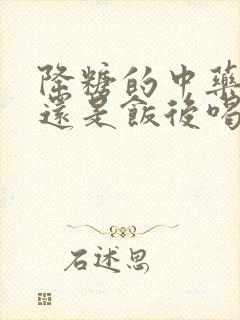 降糖的中藥
還是飯後喝
石述思